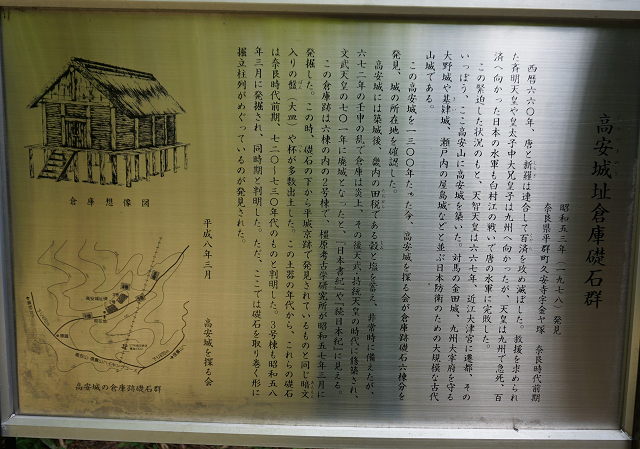 高安城址倉庫礎石群
昭和五三年(一九七八)発見
奈良県平群町久安寺字金ヤ塚　奈良時代前期
西暦六六〇年、唐と新羅は連合して百済を攻め滅ぼした。救援を求められ
た斉明天皇や皇太子中大兄皇子は九州へ向かったが、天皇は九州で急死、百
済へ向かった日本の水軍も白村江の戦いで唐の水軍に完敗した。
この緊迫した状況のもと、天智天皇は六六七年、近江大津宮に遷都、その
いっぽう、ここ高安山に高安城を築いた。対馬の金田城、九州大宰府を守る
大野城や基肄城、瀬戸内の屋島城などと並ぶ日本防衛のための大規模な古代
山城である。
この高安城を一三〇〇年たった今、高安城を探る会が倉庫跡礎石六棟分を
発見、城の所在地を確認した。
高安城には築城後、畿内の田税である穀と塩を蓄え、非常時に備えたが、
六七二年の壬申の乱で倉庫は炎上、その後天武・持統天皇の時代に修築され、
文武天皇の七〇一年に廃城となったと、「日本書紀」や「続日本紀」に見える。
この倉庫跡は六棟の内の2号棟で、橿原考古学研究所が昭和五七年二月に
発掘した。この時、礎石の下から平城京跡で発見されているものと同じ暗文
入りの盤(大皿)や杯が多数出土した。この土器の年代から、これらの礎石
は奈良時代前期、七二〇〜七三〇年代のものと判明した。3号棟も昭和五八
年三月に発掘され、同時期と判明した。ただ、ここでは礎石を取り巻く形に
掘立柱列がめぐっているのが発見された。
平成八年三月　高安城を探る会
倉庫想像図
高安城の倉庫跡礎石群